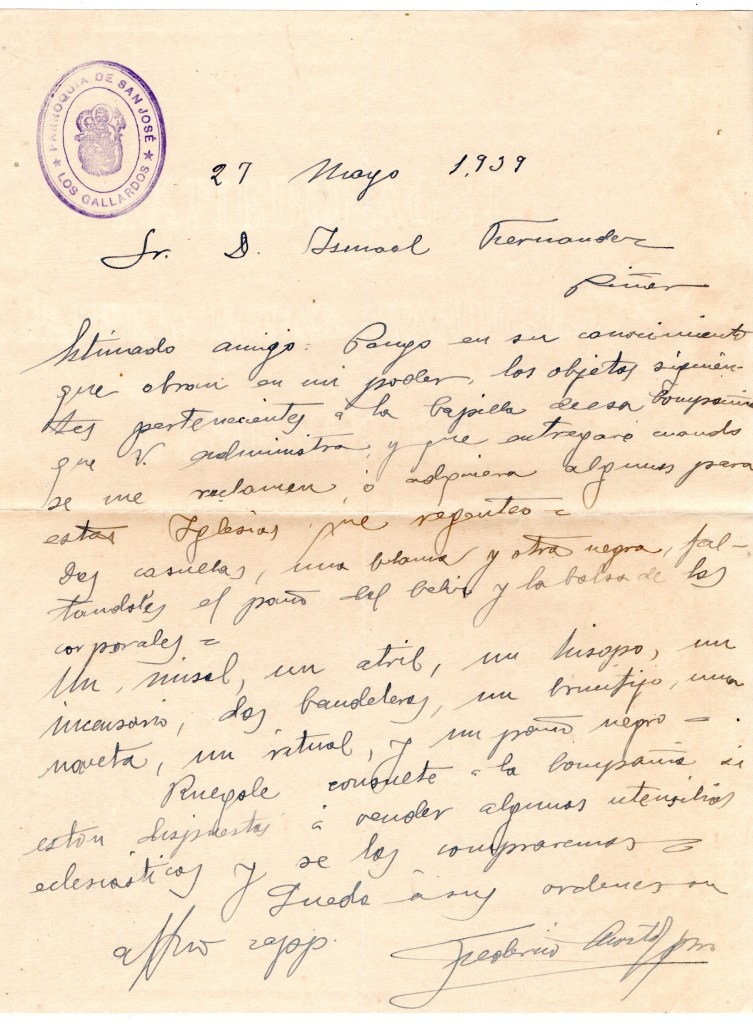 PARROQUIA DE SAN JOSÉ
★ LOS GALLARDOS ★
27 Mayo 1.939
Sr. D. Ismael Hernandez
Piñer
Estimado amigo: Pongo en su conocimiento
que obran en mi poder, los objetos siguien-
tes pertenecientes á la Capilla de esa Compañia
que V. administra, y que entregaré cuando
se me reclamen, ó adquiera algunos para
estas Iglesias que regenteo =
Dos casullas, una blanca y otra negra, fal-
tandoles el paño del Caliz y la bolsa de los
corporales =
Un misal, un atril, un hisopo, un
incensario, dos candeleros, un Crucifijo, una
naveta, un ritual, y un paño negro =
Ruegole consulte a la Compañia si
están dispuestos á vender algunos utensilios
eclesiásticos y se los compraremos =
Queda á sus ordenes su
affmo capp.
Federico Acosta pbro